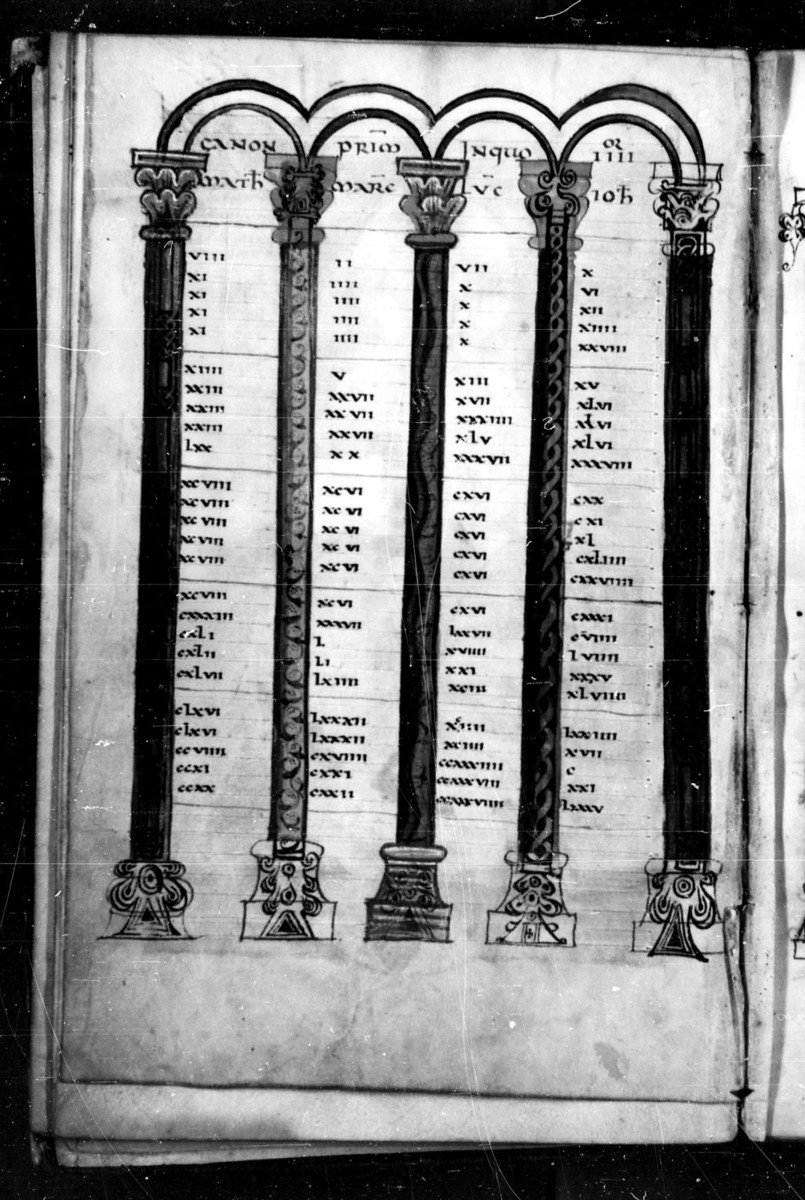 CANON PRIM̅ INQUO IIII OR
MATꞪ MARC̅ LVC̅ IOꞪ
VIII II VII X
XI IIII X VI
XI IIII X XII
XI IIII X XIIII
XI IIII X XXVIII
XIIII V XIII XV
XXIII XXVII XVII XLVI
XXIII XXVII XXXIIII XLVI
XXIII XXVII XLV XLVI
LXX XX XXXVII XXXVIII
XCVIII XCVI CXVI CXX
XCVIII XCVI CXVI CXI
XCVIII XCVI CXVI XL
XCVIII XCVI CXVI CXLIIII
XCVIII XCVI CXVI CXXVIIII
XCVIII XCVI CXVI CXXXI
CXXXIII XXXVII LXXVII CVIIII
CXLI L XVIIII LVIIII
CXLII LI XXI XXXV
CXLVII LXIIII XCIII XLVIIII
CLXVI LXXXII LXXIIII
CLXVI LXXXII XCIIII XVII
CCVIIII CXVIIII CCXXXIIII C
CCXI CXXI CCXXXVIII XXI
CCXX CXXII CCXXXVIIII LXXXV